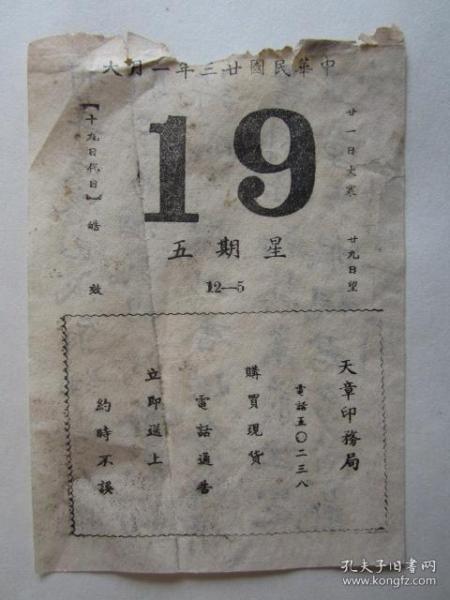 中華民國廿三年一月大
廿一日大寒　廿九日望
19
【十九日代日】皓　效
星期五
12—5
天章印務局
電話五〇二三八
購買現貨
電話通告
立即送上
約時不誤
孔夫子旧书网
www.kongfz.com